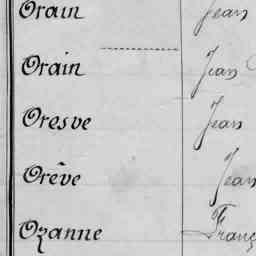 Orain Jean
Orain Jean
Oresve Jean
Orêve Jean
Ozanne Franç